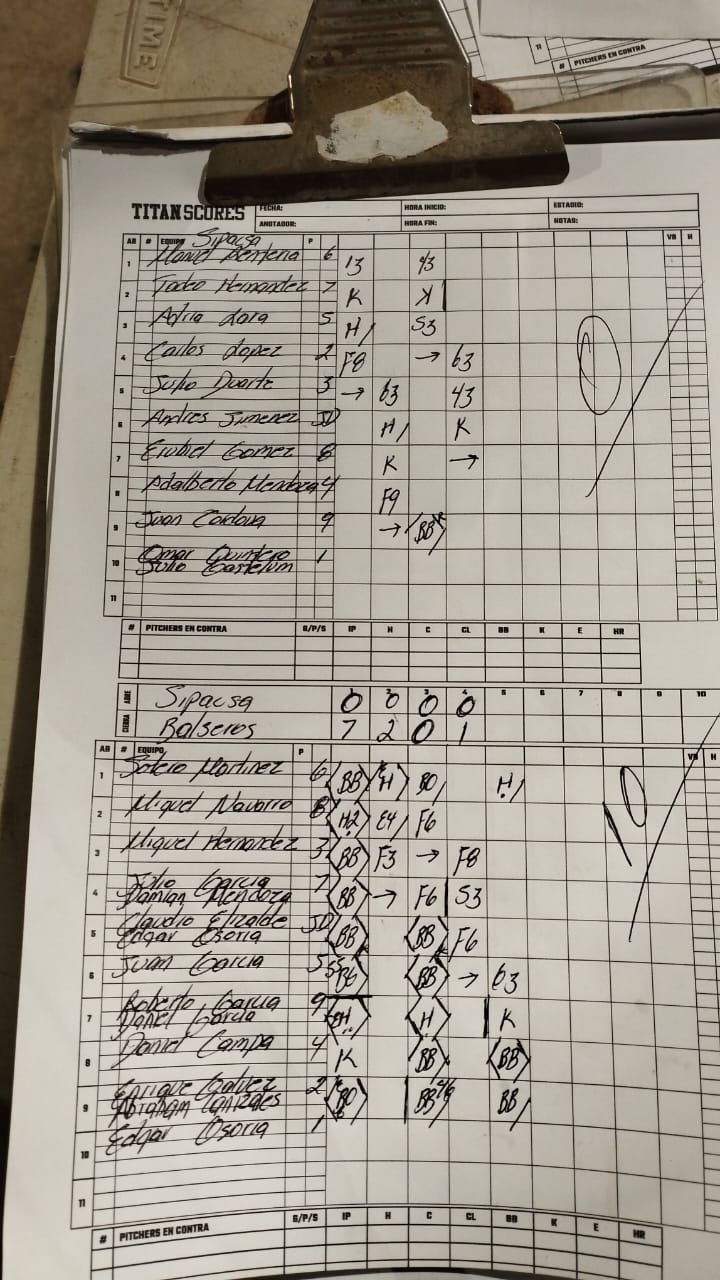 TIME
11
# PITCHERS EN CONTRA
TITAN SCORES FECHA: HORA INICIO: ESTADIO:
ANOTADOR: HORA FIN: NOTAS:
AB # EQUIPO Sipacsa P VB H
1 Manuel 6 13 43
2 Tadeo Hernandez 7 K K
3 Adria Lara 5 H/ 53
4 Carlos Lopez 2 F8 → 63
5 Julio Duarte 3 → 63 43
6 Andres Jimenez JD H/ K
7 Erubiel Gomez 8 K →
8 Adalberto Mendoza 4 F9
9 Juan Cordova 9 → BB
10 Omar Quintero 1
Julio Gastelum
11
# PITCHERS EN CONTRA G/P/S IP H C CL BB K E HR
1 2 3 4 5 6 7 8 9 10
ABRE Sipacsa 0 0 0 0
CIERRA Balseros 7 2 0 1
AB # EQUIPO P VB H
10
1 Sotero Martinez 6 BB H BO H/
2 Miguel Navarro 8 H2 E4 F6
3 Miguel Hernandez 3 BB F3 → F8
Julio Garcia 7
4 Damian Mendoza BB → F6 53
Claudio Elizalde JD
5 Edgar Osoria BB BB F6
6 Juan Garcia 5 BB → 63
Roberto Garcia 9
7 Daniel Garcia H K
8 Daniel Campa 4 K BB BB
Enrique Galvez 2
9 Abraham Canizales BO BB BB
10 Edgar Osoria 1
11
# PITCHERS EN CONTRA G/P/S IP H C CL BB K E HR